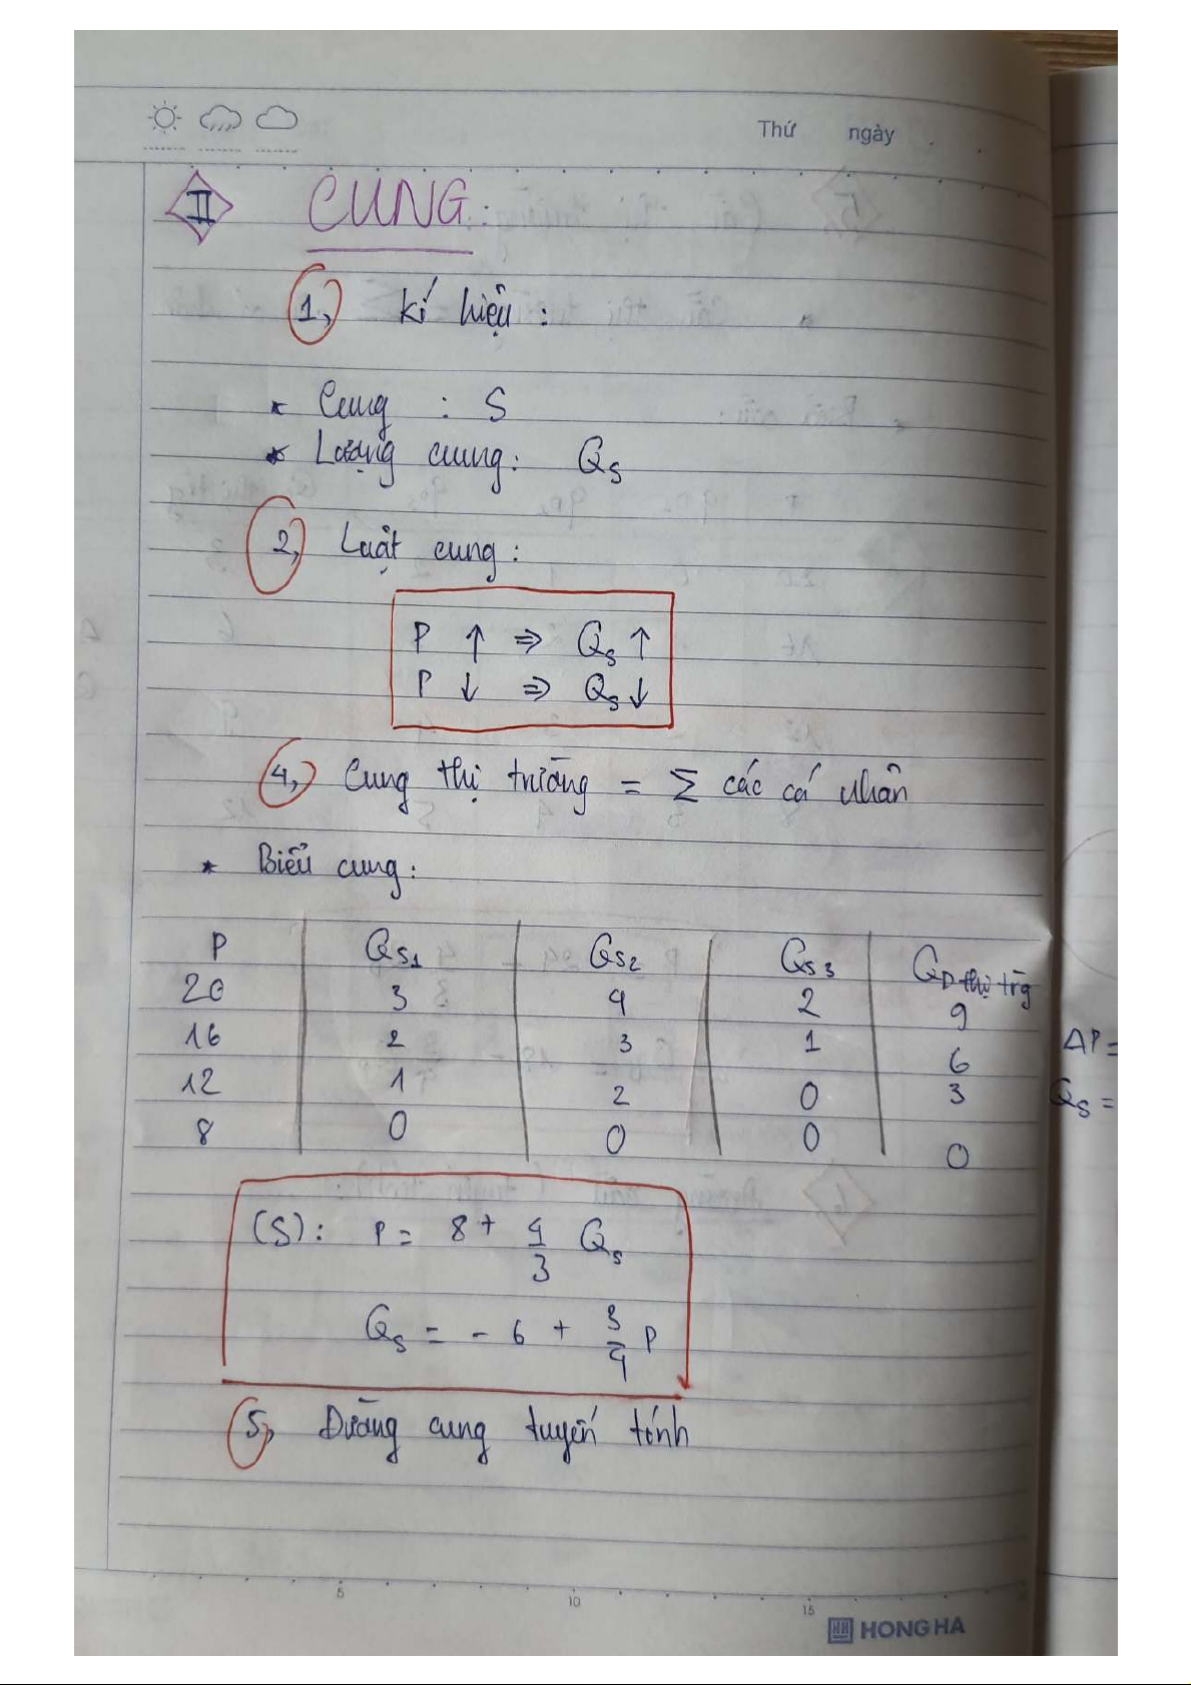 Thứ ngày
II CUNG:
1, kí hiệu :
* Cung : S
* Lượng cung: Qs
2, Luật cung:
P ↑ ⇒ Qs ↑
P ↓ ⇒ Qs ↓
4, Cung thị trường = Σ các cá nhân
* Biểu cung:
P Qs1 Qs2 Qs3 QD thị trg
20 3 4 2 9
16 2 3 1 6
12 1 2 0 3
8 0 0 0 0
(S): P = 8 + 4/3 Qs
Qs = - 6 + 3/4 P
5, Đường cung tuyến tính
ΔP =
Qs =
5 10 15
HONG HA